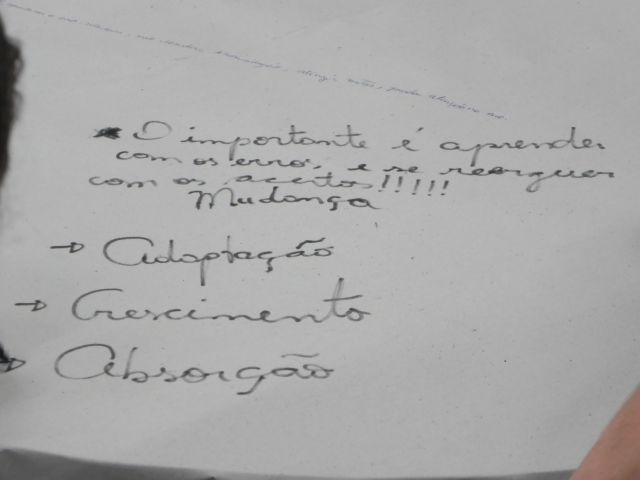 * O importante é aprender
com os erros, e se reerguer
com os aceitos!!!!!
Mudança
→ Adaptação
→ Crescimento
→ Absorção